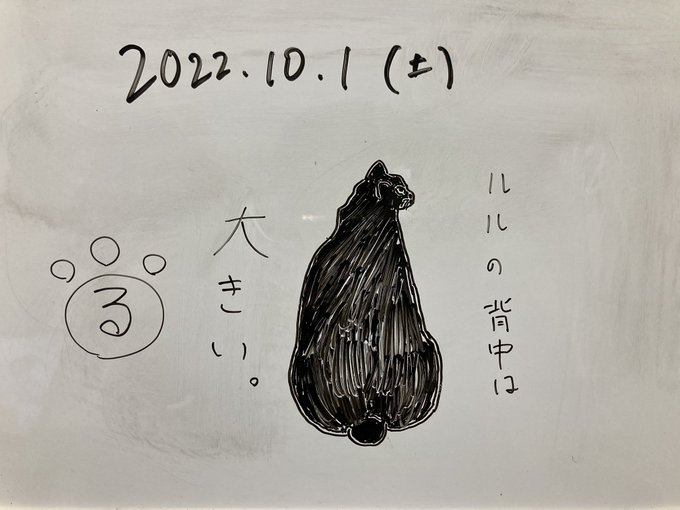 2022.10.1(土)
ルルの背中は
大きい。
る